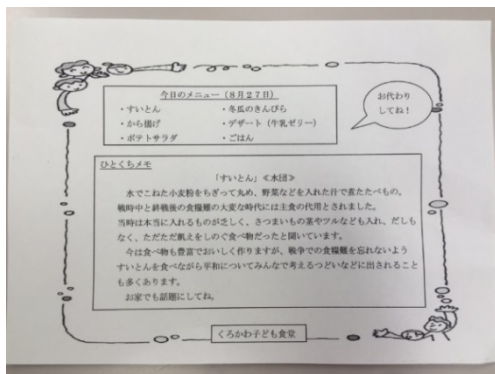 今日のメニュー（8月27日）
・すいとん　・冬瓜のきんぴら
・から揚げ　・デザート（牛乳ゼリー）
・ポテトサラダ　・ごはん
お代わり
してね！
ひとくちメモ
「すいとん」≪水団≫
水でこねた小麦粉をちぎって丸め、野菜などを入れた汁で煮たたべもの。
戦時中と終戦後の食糧難の大変な時代には主食の代用とされました。
当時は本当に入れるものが乏しく、さつまいもの茎やツルなども入れ、だしも
なく、ただただ飢えをしのぐ食べ物だったと聞いています。
今は食べ物も豊富でおいしく作りますが、戦争での食糧難を忘れないよう
すいとんを食べながら平和についてみんなで考えるつどいなどに出されること
も多くあります。
お家でも話題にしてね。
くろかわ子ども食堂